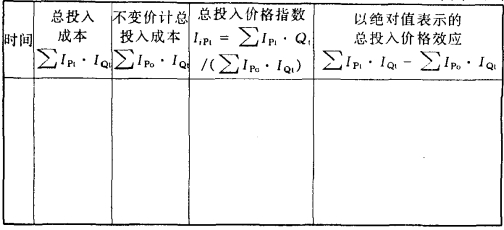 时间
总投入
成本
∑I_{P₁} · I_{Q₁}
不变价计总
投入成本
∑I_{P₀} · I_{Q₁}
总投入价格指数
I_{tP₁} = ∑I_{P₁} · Q₁
/(∑I_{P₀} · I_{Q₁})
以绝对值表示的
总投入价格效应
∑I_{P₁} · I_{Q₁} − ∑I_{P₀} · I_{Q₁}